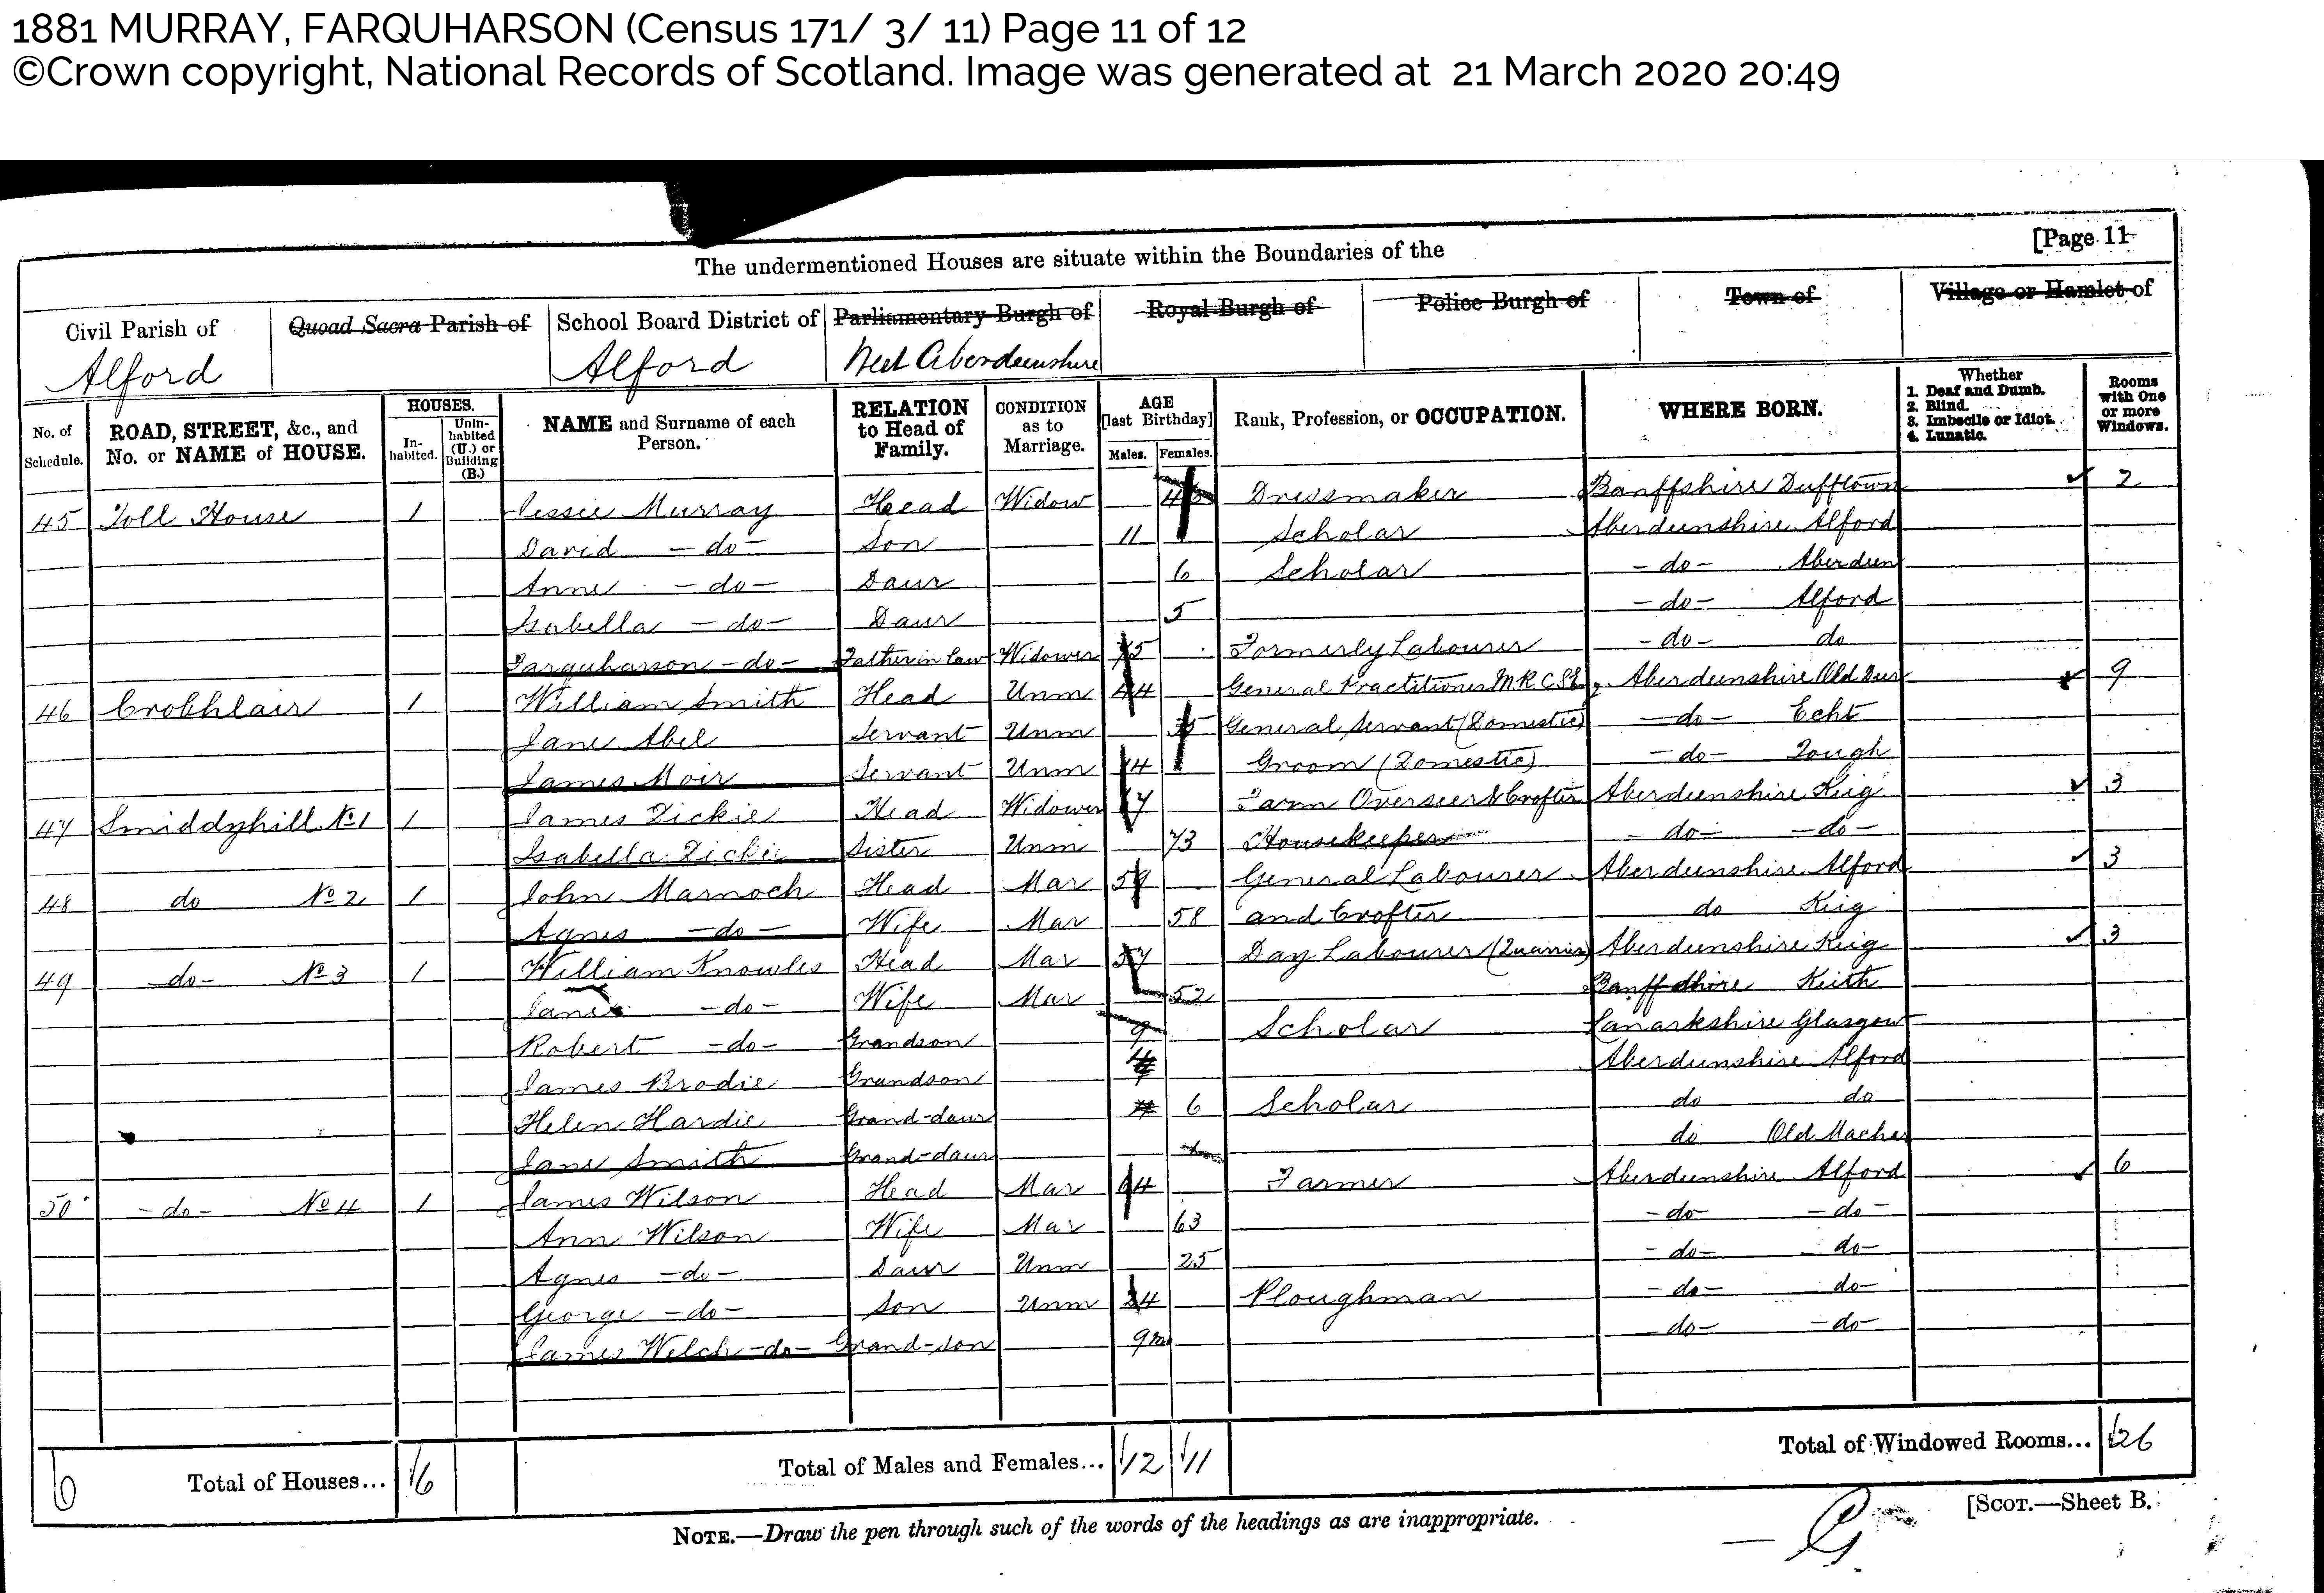 1881 MURRAY, FARQUHARSON (Census 171/ 3/ 11) Page 11 of 12
©Crown copyright, National Records of Scotland. Image was generated at 21 March 2020 20:49
[Page 11
The undermentioned Houses are situate within the Boundaries of the
Civil Parish of Quoad Sacra Parish of School Board District of Parliamentary Burgh of Royal Burgh of Police Burgh of Town of Village or Hamlet of
Alford Alford West Aberdeenshire
No. of Schedule. ROAD, STREET, &c., and No. or NAME of HOUSE. HOUSES. In-habited. Unin-habited (U.) or Building (B.) NAME and Surname of each Person. RELATION to Head of Family. CONDITION as to Marriage. AGE [last Birthday] Males. Females. Rank, Profession, or OCCUPATION. WHERE BORN. Whether 1. Deaf and Dumb. 2. Blind. 3. Imbecile or Idiot. 4. Lunatic. Rooms with One or more Windows.
45 Toll House 1 Jessie Murray Head Widow Dressmaker Banffshire Dufftown 2
David -do- Son 11 Scholar Aberdeenshire Alford
Anne -do- Daur 6 Scholar -do- Aberdeen
Isabella -do- Daur 5 -do- Alford
Farquharson -do- Father in Law Widower 75 Formerly Labourer -do- do
46 1 William Smith Head Unm 44 General Practitioner M R C S E Aberdeenshire Old Deer 9
Jane Abel Servant Unm General Servant (Domestic) -do- Echt
James Moir Servant Unm 14 Groom (Domestic) -do- Tough
47 Smiddyhill No 1 1 James Dickie Head Widower 67 Farm Overseer & Crofter Aberdeenshire Keig 3
Isabella Dickie Sister Unm 73 Housekeeper -do- -do-
48 do No 2 1 John Marnoch Head Mar 59 General Labourer Aberdeenshire Alford 3
Agnes -do- Wife Mar 58 and Crofter do Keig
49 -do- No 3 1 William Knowles Head Mar 57 Day Labourer (Quarrier) Aberdeenshire Keig 3
Jane -do- Wife Mar 52 Banffshire Keith
Robert -do- Grandson 9 Scholar Lanarkshire Glasgow
James Brodie Grandson 4 Aberdeenshire Alford
Helen Hardie Grand-daur 6 Scholar do do
Jane Smith Grand-daur do Old Machar
50 -do- No 4 1 James Wilson Head Mar 64 Farmer Aberdeenshire Alford 6
Ann Wilson Wife Mar 63 -do- -do-
Agnes -do- Daur Unm 25 -do- -do-
George -do- Son Unm 24 Ploughman -do- do-
James Welch -do- Grand-son 9m -do- -do-
6 Total of Houses... 6 Total of Males and Females... 12 11 Total of Windowed Rooms... 26
NOTE.—Draw the pen through such of the words of the headings as are inappropriate.
[SCOT.—Sheet B.